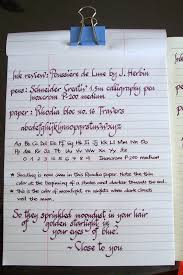 Ink review: Poussière de Lune by J. Herbin
pens: Schneider Creatis 1.5m calligraphy pen
Inoxcrom P-200 medium
paper: Rhodia bloc no. 16 Travers
abcdefghijklmnopqrstuvwxyz
Aa Bb Cc Dd Ee Ff Gg Hh Ii Jj Kk Ll Mm Nn Oo
Pp Qq Rr Ss Tt Uu Vv Ww Xx Yy Zz
0 1 2 3 4 5 6 7 8 9 Inoxcrom P-200 medium
* Shading is now seen in this Rhodia paper. Note the thin
color at the beginning of a stroke and darker towards the end.
* This is the color of moonlight on nights when dark clouds
veil the moon.
So they sprinkled moondust in your hair
of golden starlight in
your eyes of blue.
- Close to you